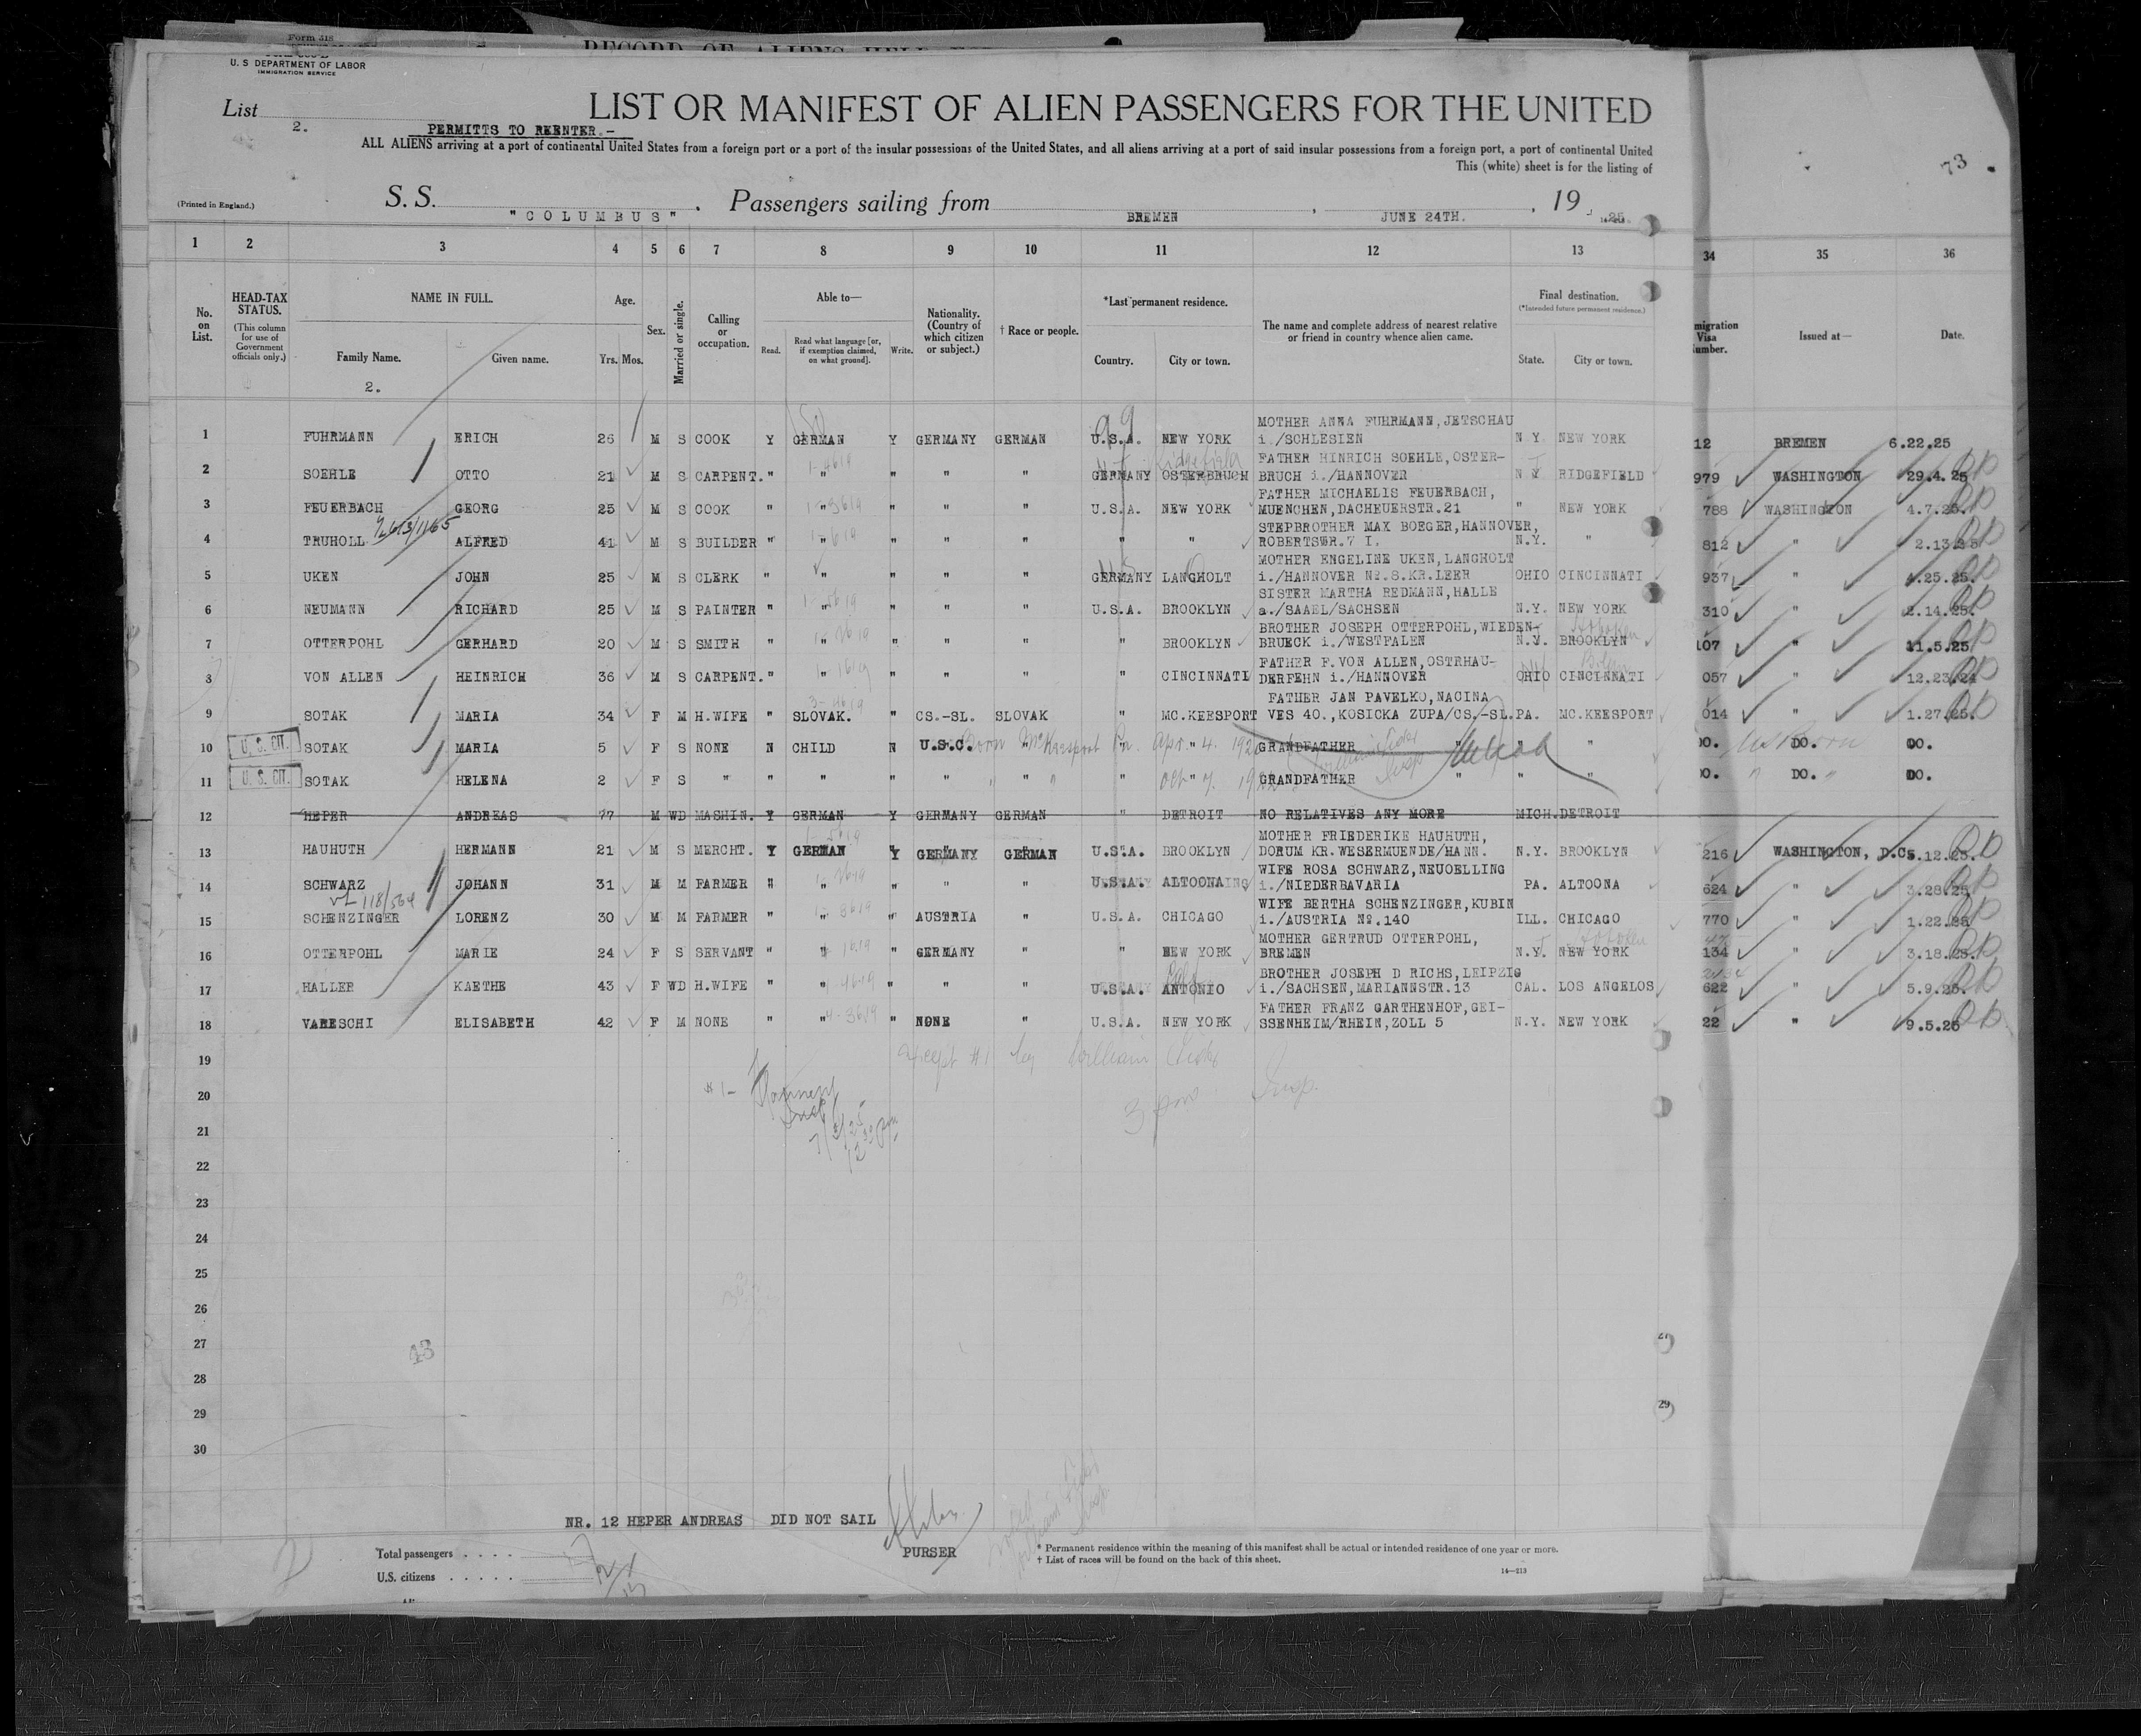 Form 318
RECORD OF ALIENS HELD
U. S DEPARTMENT OF LABOR
IMMIGRATION SERVICE
List 2.
LIST OR MANIFEST OF ALIEN PASSENGERS FOR THE UNITED
PERMITTS TO REENTER.-
ALL ALIENS arriving at a port of continental United States from a foreign port or a port of the insular possessions of the United States, and all aliens arriving at a port of said insular possessions from a foreign port, a port of continental United
This (white) sheet is for the listing of
73
(Printed in England.) S. S. "COLUMBUS". Passengers sailing from BREMEN, JUNE 24TH., 19 25.
1 2 3 4 5 6 7 8 9 10 11 12 13 34 35 36
No. on List.
HEAD-TAX STATUS. (This column for use of Government officials only.)
NAME IN FULL. Family Name. Given name.
2.
Age. Yrs. Mos.
Sex.
Married or single.
Calling or occupation.
Able to— Read. Read what language [or, if exemption claimed, on what ground]. Write.
Nationality. (Country of which citizen or subject.)
† Race or people.
*Last permanent residence. Country. City or town.
The name and complete address of nearest relative or friend in country whence alien came.
Final destination. (*Intended future permanent residence.) State. City or town.
migration Visa umber.
Issued at—
Date.
MOTHER ANNA FUHRMANN,JETSCHAU
1 FUHRMANN ERICH 26 M S COOK Y GERMAN Y GERMANY GERMAN U.S.A. NEW YORK i./SCHLESIEN N Y. NEW YORK 12 BREMEN 6.22.25
FATHER HINRICH SOEHLE,OSTER-
2 SOEHLE OTTO 21 M S CARPENT. " " " " " GERMANY OSTERBRUCH BRUCH i./HANNOVER N Y RIDGEFIELD 979 WASHINGTON 29.4.25
FATHER MICHAELIS FEUERBACH,
3 FEUERBACH GEORG 25 M S COOK " " " " " U.S.A. NEW YORK MUENCHEN,DACHEUERSTR.21 " NEW YORK 788 WASHINGTON 4.7.25.
STEPBROTHER MAX BOEGER,HANNOVER,
4 TRUHOLL ALFRED 41 M S BUILDER " " " " " " " ROBERTSTR.7 I. N.Y. " 812 " 2.13.25
MOTHER ENGELINE UKEN,LANGHOLT
5 UKEN JOHN 25 M S CLERK " " " " " GERMANY LANGHOLT i./HANNOVER No.8.KR.LEER OHIO CINCINNATI 937 " 4.25.25.
SISTER MARTHA REDMANN,HALLE
6 NEUMANN RICHARD 25 M S PAINTER " " " " " U.S.A. BROOKLYN a./SAAEL/SACHSEN N.Y. NEW YORK 310 " 2.14.25.
BROTHER JOSEPH OTTERPOHL,WIEDEN-
7 OTTERPOHL GERHARD 20 M S SMITH " " " " " " BROOKLYN BRUECK i./WESTFALEN N.Y. BROOKLYN 107 " 11.5.25
FATHER F.VON ALLEN,OSTRHAU-
8 VON ALLEN HEINRICH 36 M S CARPENT. " " " " " " CINCINNATI DERFEHN i./HANNOVER OHIO CINCINNATI 057 " 12.23.24
FATHER JAN PAVELKO,NACINA
9 SOTAK MARIA 34 F M H.WIFE " SLOVAK. " CS.-SL. SLOVAK " MC.KEESPORT VES 40.,KOSICKA ZUPA/CS.-SL. PA. MC.KEESPORT 014 " 1.27.25.
10 U. S. CIT. SOTAK MARIA 5 F S NONE N CHILD N U.S.C. Born McKeesport Pa. Apr. 4. 1920 GRANDFATHER " " " DO. US Born DO. DO.
11 U. S. CIT. SOTAK HELENA 2 F S " " " " " " " Oct 7. 1922 GRANDFATHER " " " DO. DO. DO.
12 HEPER ANDREAS 77 M WD MASHIN. Y GERMAN Y GERMANY GERMAN " DETROIT NO RELATIVES ANY MORE MICH. DETROIT
MOTHER FRIEDERIKE HAUHUTH,
13 HAUHUTH HERMANN 21 M S MERCHT. Y GERMAN Y GERMANY GERMAN U.S.A. BROOKLYN DORUM KR.WESERMUENDE/HANN. N.Y. BROOKLYN 216 WASHINGTON, D.C. 5.12.25.
WIFE ROSA SCHWARZ,NEUOELLING
14 SCHWARZ JOHANN 31 M M FARMER " " " " " U.S.A. ALTOONA i./NIEDERBAVARIA PA. ALTOONA 624 " 3.28.25
WIFE BERTHA SCHENZINGER,KUBIN
15 SCHENZINGER LORENZ 30 M M FARMER " " " AUSTRIA " U.S.A. CHICAGO i./AUSTRIA No.140 ILL. CHICAGO 770 " 1.22.25
MOTHER GERTRUD OTTERPOHL,
16 OTTERPOHL MARIE 24 F S SERVANT " " " GERMANY " " NEW YORK BREMEN N.Y. NEW YORK 134 " 3.18.25.
BROTHER JOSEPH D RICHS,LEIPZIG
17 HALLER KAETHE 43 F WD H.WIFE " " " " " U.S.A. ANTONIO i./SACHSEN,MARIANNSTR.13 CAL. LOS ANGELOS 622 " 5.9.25.
FATHER FRANZ GARTHENHOF,GEI-
18 VARESCHI ELISABETH 42 F M NONE " " " NONE " U.S.A. NEW YORK SSENHEIM/RHEIN,ZOLL 5 N.Y. NEW YORK 22 " 9.5.25
19
20
21
22
23
24
25
26
27
28
29
30
NR. 12 HEPER ANDREAS DID NOT SAIL
PURSER
Total passengers . . . .
U.S. citizens . . . . .
* Permanent residence within the meaning of this manifest shall be actual or intended residence of one year or more.
† List of races will be found on the back of this sheet.
14—213